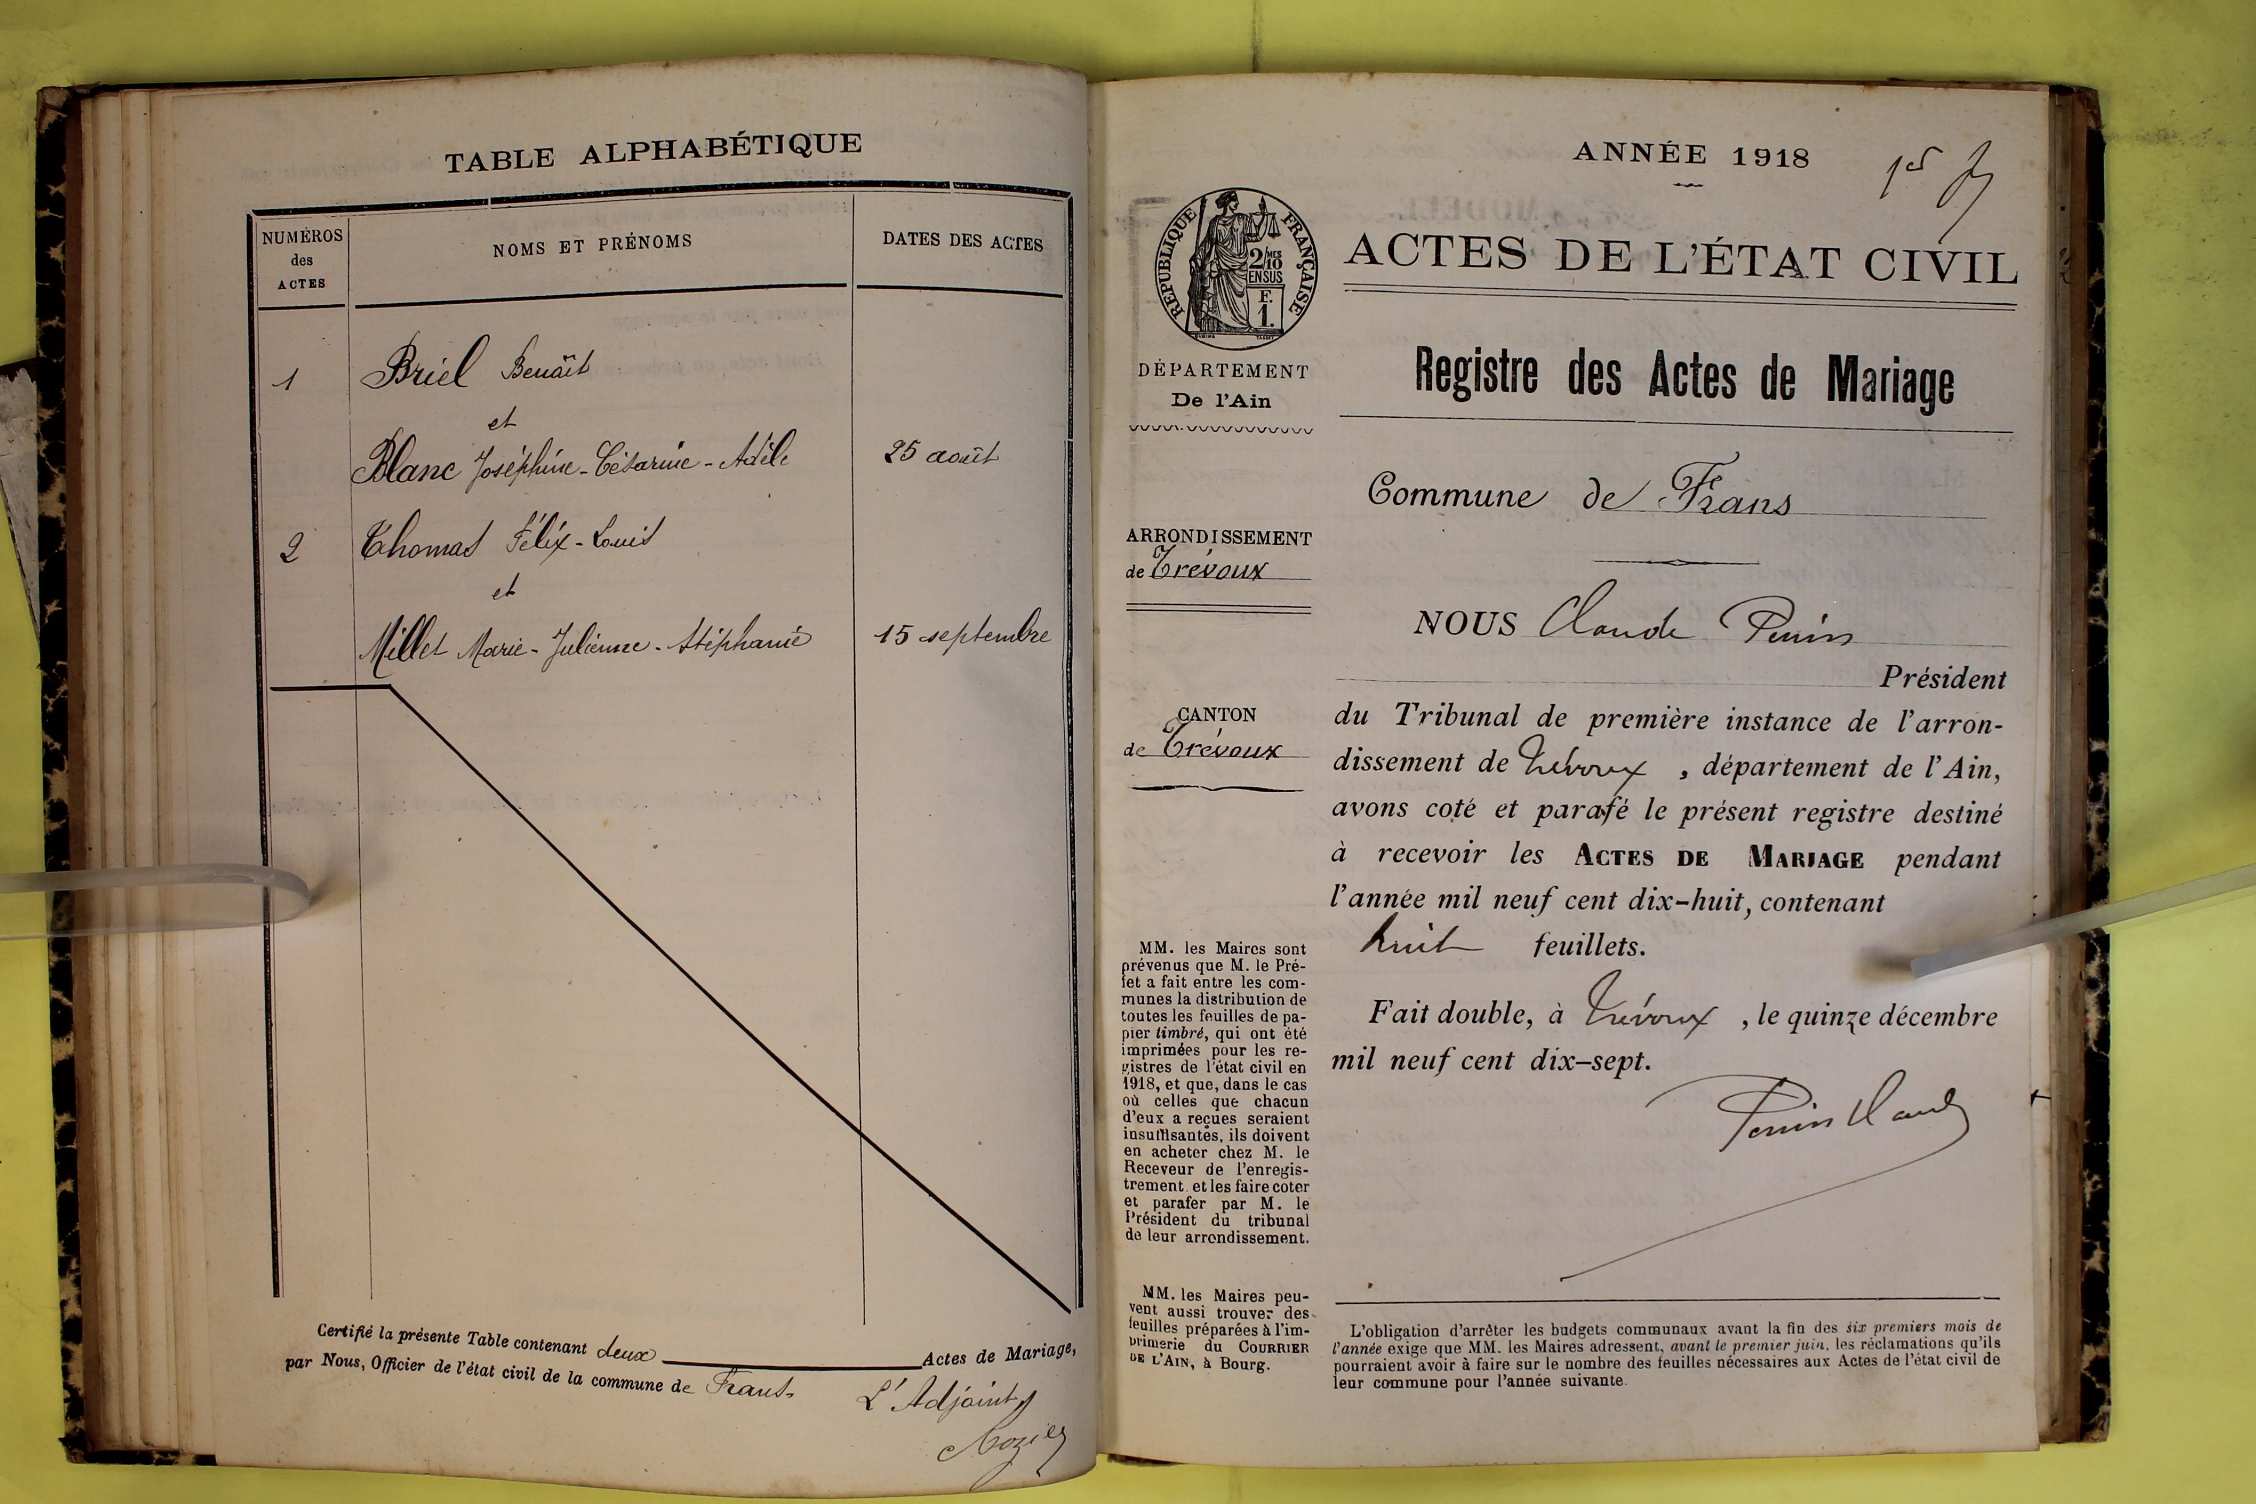 TABLE ALPHABÉTIQUE
NUMÉROS
des
ACTES
NOMS ET PRÉNOMS
DATES DES ACTES
1 Briel Benoît
et
Blanc Joséphine-Césarine-Adèle 25 août
2 Thomas Félix-Louis
et
Millet Marie-Julienne-Stéphanie 15 septembre
Certifié la présente Table contenant deux Actes de Mariage,
par Nous, Officier de l'état civil de la commune de Frans
L'Adjoint,
ANNÉE 1918
1er
RÉPUBLIQUE FRANÇAISE
2/10 MES
EN SUS
F.
1.
DÉPARTEMENT
De l'Ain
ARRONDISSEMENT
de Trévoux
CANTON
de Trévoux
MM. les Maires sont
prévenus que M. le Pré-
fet a fait entre les com-
munes la distribution de
toutes les feuilles de pa-
pier timbré, qui ont été
imprimées pour les re-
gistres de l'état civil en
1918, et que, dans le cas
où celles que chacun
d'eux a reçues seraient
insuffisantes, ils doivent
en acheter chez M. le
Receveur de l'enregis-
trement et les faire coter
et parafer par M. le
Président du tribunal
de leur arrondissement.
MM. les Maires peu-
vent aussi trouver des
feuilles préparées à l'im-
primerie du COURRIER
DE L'AIN, à Bourg.
ACTES DE L'ÉTAT CIVIL
Registre des Actes de Mariage
Commune de Frans
NOUS Claude Perrin
Président
du Tribunal de première instance de l'arron-
dissement de Trévoux, département de l'Ain,
avons coté et parafé le présent registre destiné
à recevoir les ACTES DE MARIAGE pendant
l'année mil neuf cent dix-huit, contenant
huit feuillets.
Fait double, à Trévoux, le quinze décembre
mil neuf cent dix-sept.
Perrin Claude
L'obligation d'arrêter les budgets communaux avant la fin des six premiers mois de
l'année exige que MM. les Maires adressent, avant le premier juin, les réclamations qu'ils
pourraient avoir à faire sur le nombre des feuilles nécessaires aux Actes de l'état civil de
leur commune pour l'année suivante.